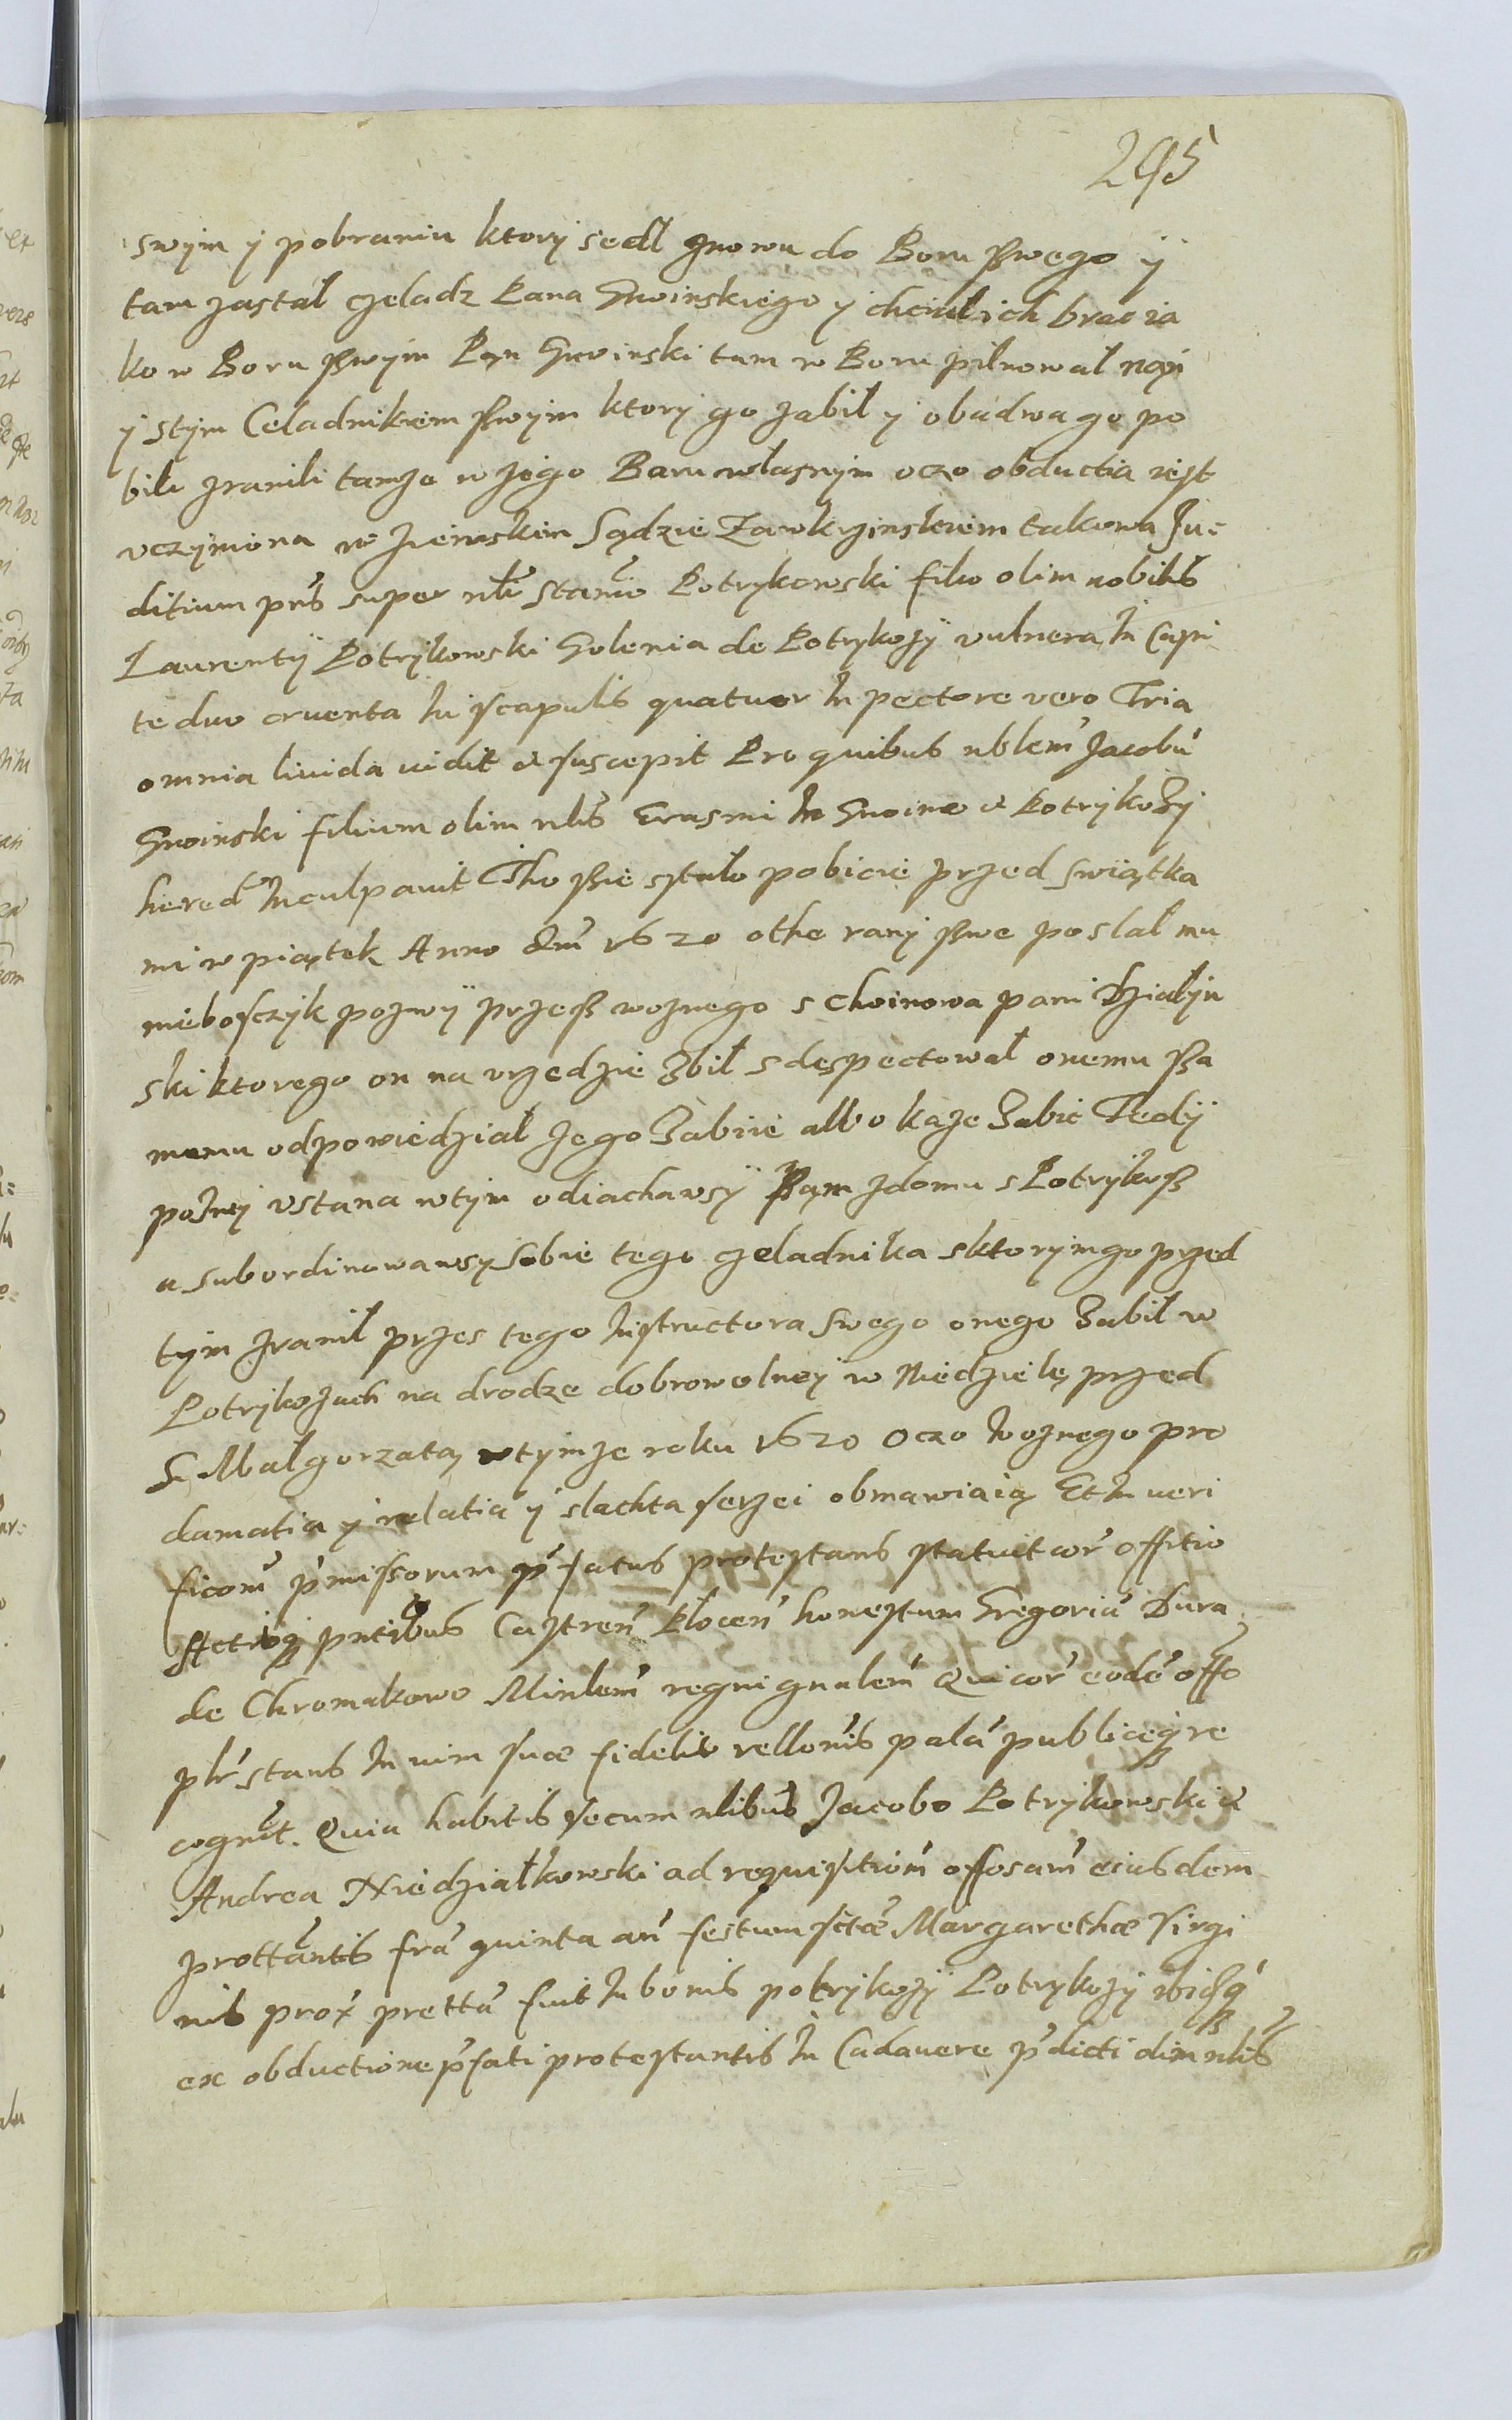 295
swym y pobraniu ktory sedl znowu do Boru sswego ÿ
tam zastal czeladz Pana Gnoinskiego y chcial ich brac ia
ko w Boru sswym Pan Gnoinski tam w Boru pilnowal nan
y stym Celadnikiem sswym ktory go zabil y obadwa go po
bili zranili tamze w jego Boru wlasnym oczo obductia iest
uczyniona w ziemskim Sądzie Zawkrzinskiem takowa Ju=
ditium pns super nli Stanio Potrykowski filio olim nobilis
Laurentÿ Potrykowski Golenia de Potrykozÿ vulnera In Capi
te duo cruenta In scapulis quatuor In pectore vero Tria
omnia livida vidit et suscepit Pro quibus nblem Jacobu
Gnoinski filium olim nlis Erasmi In Gnoino et Potrykozy
hered Inculpavit Tho ssie stalo pobicie przed swiątka
mi w piątek Anno Dni 1620 othe rany sswe poslal mu
niebosczyk pozwÿ przess woznego s Choinowa pani Dzialyn
ski ktorego on na urzedzie zbil sdespectowal onemu ssa
memu odpowiedzial Jego zabiie albo kaze zabic Tedÿ
pozwy ustana wtym odiachawsÿ ssam zdomu s Potrykoss
a subordinowawsy sobie tego czeladnika sktorym go przed
tym zranil przes tego Instructora swego onego zabil w
Potrykozach na drodze dobrowolney w Niedzielę przed
S. Malgorzatą wtymze roku 1620 oczo woznego pro
clamatia y relatia y slachta serzei obmawiaią Et In veri
ficom pmissorum pfatus protestans statuit cor offitio
Actisq pntibus Castren Plocen honestum Gregoriu Dura
de Chromakowo Minlem regni gnalem Qui cor eode offo
plr stans In vim suæ fidelis rellonis pala publiceq re
cognt. Quia habitis secum nlibus Jacobo Potrykowski et
Andrea Niedzialkowski ad requisition offosam eiusdem
prottantis fra quinta an festum sctæ Margarethæ Virgi
nis prox pretta fuit In bonis potrykozÿ Potrykozy ibiq
ex obductione pfati protestantis In Cadavere pdicti olim nlis